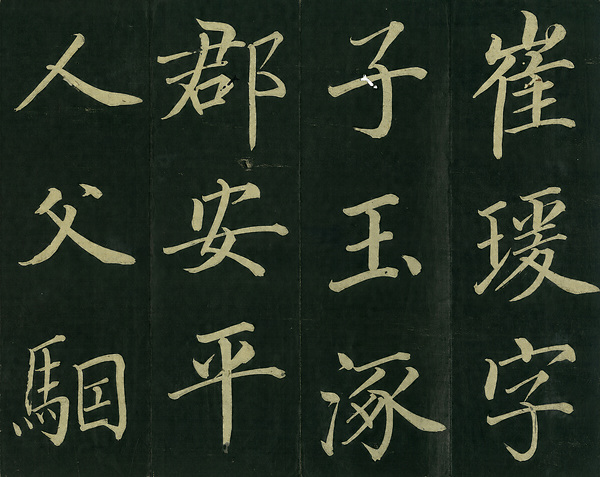 崔瑗字
子玉涿
郡安平
人父駰